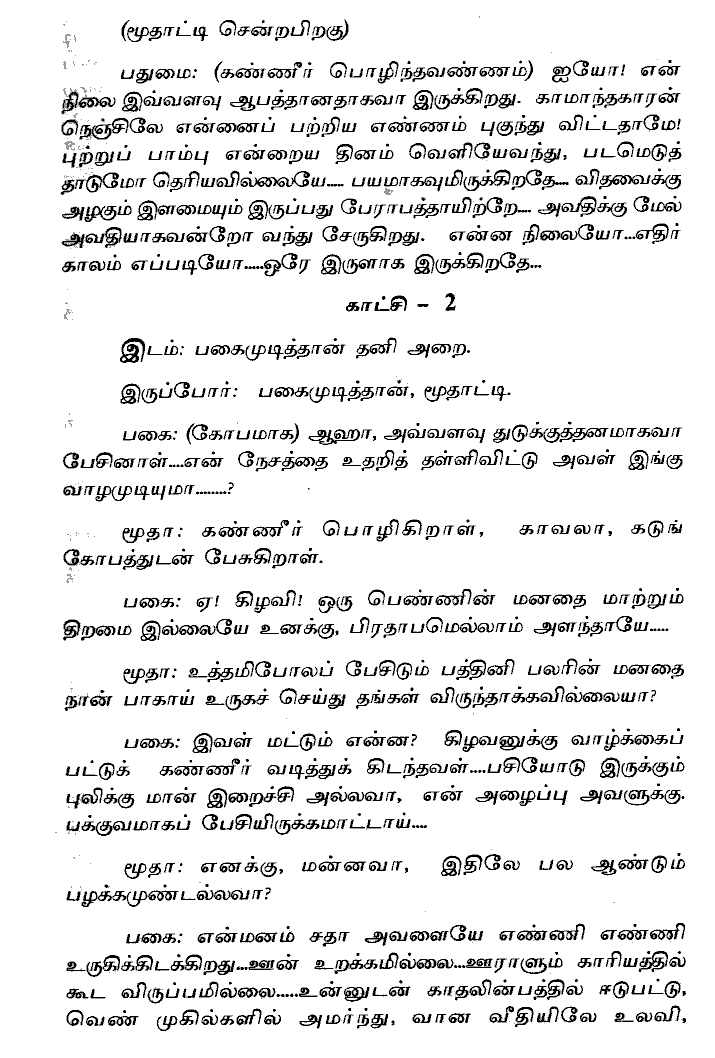 (மூதாட்டி சென்றபிறகு)
பதுமை: (கண்ணீர் பொழிந்தவண்ணம்) ஐயோ! என்
நிலை இவ்வளவு ஆபத்தானதாகவா இருக்கிறது. காமாந்தகாரன்
நெஞ்சிலே என்னைப் பற்றிய எண்ணம் புகுந்து விட்டதாமே!
புற்றுப் பாம்பு என்றைய தினம் வெளியேவந்து, படமெடுத்
தாடுமோ தெரியவில்லையே..... பயமாகவுமிருக்கிறதே.... விதவைக்கு
அழகும் இளமையும் இருப்பது பேராபத்தாயிற்றே.... அவதிக்கு மேல்
அவதியாகவன்றோ வந்து சேருகிறது. என்ன நிலையோ...எதிர்
காலம் எப்படியோ.....ஒரே இருளாக இருக்கிறதே...
காட்சி - 2
இடம்: பகைமுடித்தான் தனி அறை.
இருப்போர்: பகைமுடித்தான், மூதாட்டி.
பகை: (கோபமாக) ஆஹா, அவ்வளவு துடுக்குத்தனமாகவா
பேசினாள்....என் நேசத்தை உதறித் தள்ளிவிட்டு அவள் இங்கு
வாழமுடியுமா........?
மூதா: கண்ணீர் பொழிகிறாள், காவலா, கடுங்
கோபத்துடன் பேசுகிறாள்.
பகை: ஏ! கிழவி! ஒரு பெண்ணின் மனதை மாற்றும்
திறமை இல்லையே உனக்கு, பிரதாபமெல்லாம் அளந்தாயே.....
மூதா: உத்தமிபோலப் பேசிடும் பத்தினி பலரின் மனதை
நான் பாகாய் உருகச் செய்து தங்கள் விருந்தாக்கவில்லையா?
பகை: இவள் மட்டும் என்ன? கிழவனுக்கு வாழ்க்கைப்
பட்டுக் கண்ணீர் வடித்துக் கிடந்தவள்....பசியோடு இருக்கும்
புலிக்கு மான் இறைச்சி அல்லவா, என் அழைப்பு அவளுக்கு.
பக்குவமாகப் பேசியிருக்கமாட்டாய்....
மூதா: எனக்கு, மன்னவா, இதிலே பல ஆண்டும்
பழக்கமுண்டல்லவா?
பகை: என்மனம் சதா அவளையே எண்ணி எண்ணி
உருகிக்கிடக்கிறது...ஊன் உறக்கமில்லை...ஊராளும் காரியத்தில்
கூட விருப்பமில்லை.....உன்னுடன் காதலின்பத்தில் ஈடுபட்டு,
வெண் முகில்களில் அமர்ந்து, வான வீதியிலே உலவி,